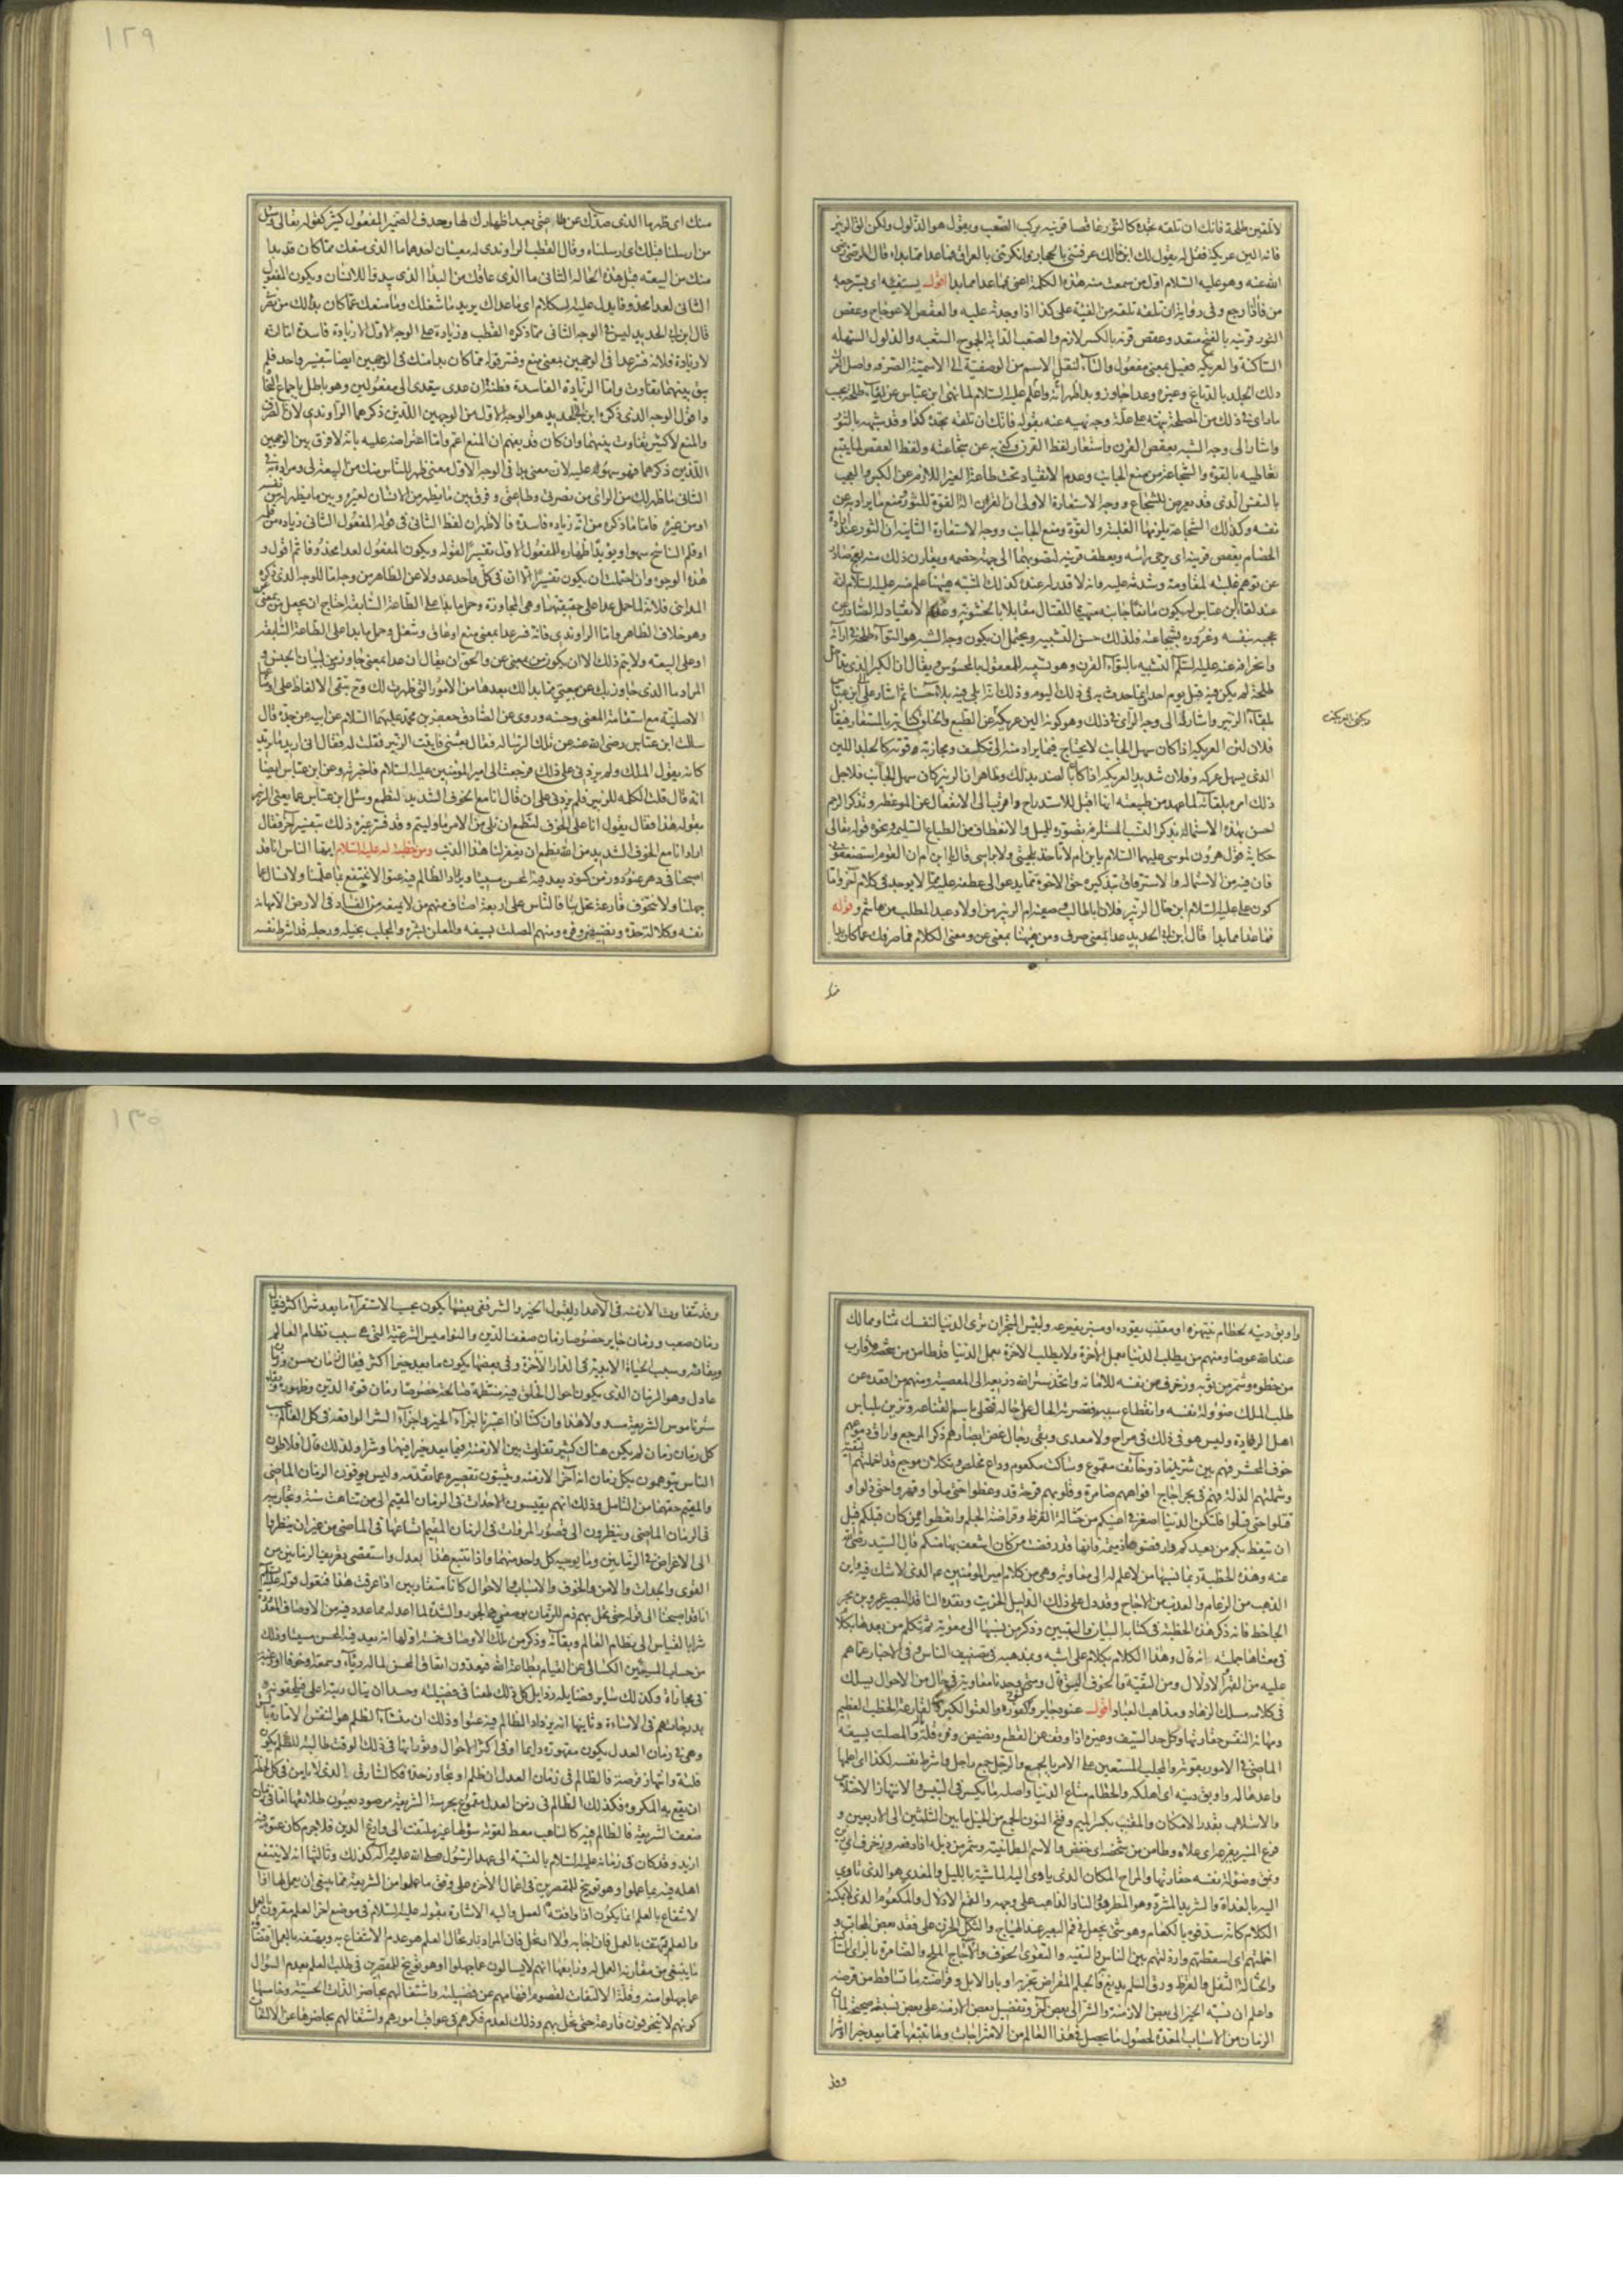 لا تلقين طلحة فانك ان تلقه تجده كالثور عاقصا قرنه يركب الصعب ويقول هو الذلول ولكن الق الزبير
فانه الين عريكة فقل له يقول لك ابن خالك عرفتنى بالحجاز وانكرتنى بالعراق فما عدا مما بدا قال الرضى رضى
الله عنه وهو عليه السلام اول من سمعت منه هذه الكلمة اعنى فما عدا مما بدا اقول يستفيئه اى يسترجعه
من فاء اذا رجع وفى رواية ان تلقه تلفه من الفيته على كذا اذا وجدته عليه والعقص الاعوجاج وعقص
الثور قرنيه بالفتح متعد وعقص قرنه بالكسر لازم والصعب الدابة الجموح الشغبه والذلول السهله
الساكنة والعريكه فعيل بمعنى مفعول والتاء لنقل الاسم من الوصفية الى الاسمية الصرفه واصل العرك
دلك الجلد بالدباغ وغيره وعدا جاوز وبدا ظهر انه واعلم عليه السلام لما نهى ابن عباس عن لقاء طلحة بحسب
ماراى فى ذلك من المصلحة نبهه على علة وجه نهيه عنه بقوله فانك ان تلقه تجده كذا وقد شبهه بالثور
واشار الى وجه الشبه بعقص القرن واستعار لفظ القرن وكنى به عن شجاعته ولفظ العقص لما يتبع
تعاطيه بالقوة والشجاعة من منع الجانب وعدم الانقياد تحت طاعة الغير اللازم عن الكبر والعجب
بالنفس الذى قد يعرض للشجاع ووجه الاستعارة الاولى ان القرن الة القوة للثور وبه يمنع ما يراد به عن
نفسه وكذلك الشجاعة يلزمها الغلبة والقوة ومنع الجانب ووجه الاستعارة الثانيه ان الثور عند ارادة
الخصام يعقص قرنيه اى يرخى راسه ويعطف قرنيه ليصوبهما الى جهة خصمه ويقارن ذلك منه نفخ صادر
عن توهم غلبته لمقاومه وشدته عليه وانه لا قدر له عنده كذلك المشبه ههنا علم منه عليه السلام انه
عند لقاء ابن عباس له يكون مانعا جانبه متهيئا للقتال مقابلا بالخشونة وعدم الانقياد له الصادر عن
عجبه بنفسه وغروره بشجاعته فلذلك حسن التشبيه ويحتمل ان يكون وجه الشبه هو التواء طلحة فى ارائه
وانحرافه عنه عليه السلم الشبيه بالتواء القرن وهو تشبيه للمعقول بالمحسوس يقال ان الكبر الذى تداخل
طلحة لم يكن فيه قبل يوم احد وانما حدث به فى ذلك اليوم وذلك انه ابلى فيه بلاء حسنا ثم اشار على ابن عباس
بلقاء الزبير واشار له الى وجه الراى فى ذلك وهو كونه الين عريكة عن الطبع والخلق كناية بالمستعار فيقال
فلان لين العريكه اذا كان سهل الجانب لا يحتاج فيما يراد منه الى تكليف ومجاذبة قوية كالجلد اللين
الذى يسهل عركه وفلان شديد العريكه اذا كان بالضد من ذلك وظاهر ان الزبير كان سهل الجانب فلاجل
ذلك امره بلقائه لما عهد من طبيعته انها اقبل للاستدراج واقرب الى الانفعال عن الموعظه وتذكر الرحم
احسن بهذه الاستمالة بذكر النسب المستلزم تصوره للميل والانعطاف من الطباع السليمه ونحوه قوله تعالى
حكاية قول هرون لموسى عليهما السلام يابن ام لا تاخذ بلحيتى ولا براسى قال ابن ام ان القوم استضعفونى
فان فيه من الاستماله والاسترقاق بتذكيره حق الاخوة مما يدعو الى عطفه عليه ما لا يوجد فى كلام آخر واما
كون على عليه السلام ابن خال الزبير فلان اباطالب وصفيه ام الزبير من اولاد عبد المطلب من هاشم وقوله
فما عدا مما بدا قال ابن ابى الحديد عدا بمعنى صرف ومن ههنا بمعنى عن ومعنى الكلام فما صرفك عما كان بدا
منك اى ظهر ما الذى صدك عن طاعتى بعد اظهارك لها وحذف الضمير المفعول كثير كقوله تعالى وسئل
من ارسلنا قبلك اى ارسلناه وقال القطب الراوندى له معنيان احدهما ما الذى منعك مما كان قد بدا
منك من البيعه قبل هذه الحالة الثانى ما الذى عاقك من البداء الذى يبدو للانسان ويكون المفعول
الثانى لعدا محذوفا يدل عليه الكلام اى ما عداك يريد ما شغلك وما منعك عما كان بدالك من نصرتى
قال ابن ابى الحديد ليس فى الوجه الثانى مما ذكره القطب وزيادة على الوجه الاول الا زيادة فاسدة اما انه
لا زيادة فلانه فسر عدا فى الوجهين بمعنى منع وفسر قوله مما كان بدا منك فى الوجهين ايضا بتفسير واحد فلم
يبق بينهما تفاوت واما الزيادة الفاسدة فظنه ان عدى يتعدى الى مفعولين وهو باطل باجماع النحاة
واقول الوجه الذى ذكره ابن ابى الحديد هو الوجه الاول من الوجهين اللذين ذكرهما الراوندى لان الصرف
والمنع لا كثير تفاوت بينهما وان كان قد يفهم ان المنع اعم واما اعتراضه عليه بانه لا فرق بين الوجهين
اللذين ذكرهما فهو سهو له عليه لان معنى بدا فى الوجه الاول معنى ظهر للناس منك من البيعة لى ومراده به فى
الثانى ما ظهر لك من الراى من نصرتى وطاعتى وفرق بين ما يظهر من الانسان لغيره وبين ما يظهر له من نفسه
او من غيره فاما ما ذكره من انه زيادة فاسدة فالاظهر ان لفظ الثانى فى قوله المفعول الثانى زيادة من قلمه
او قلم الناسخ سهوا ويؤيده اظهاره للمفعول الاول تفسيرا لقوله ويكون المفعول لعدا محذوفا ثم اقول و
هذه الوجوه وان احتملت ان يكون تفسيرا الا ان فى كل واحد عدولا عن الظاهر من وجه اما الوجه الذى ذكره
المداينى فلانه لما حمل عدا على حقيقتها وهى المجاوزة وحمل ما بدا على الطاعة السابقة احتاج ان يجعل من بمعنى
وهو خلاف الظاهر واما الراوندى فانه فسر عدا بمعنى منع او عاق وشغل وحمل ما بدا على الطاعة السابقه
او على البيعه ولا يتم ذلك الا ان يكون من بمعنى عن والحق ان يقال ان عدا بمعنى جاوز ومن لبيان الجنس و
المراد ما الذى جاوز بك عن بيعتى مما بدا لك بعدها من الامور التى ظهرت لك وح تبقى الالفاظ على اوضاعها
الاصلية مع استقامة المعنى وحسنه وروى عن الصادق جعفر بن محمد عليهما السلام عن ابيه عن جده قال
سالت ابن عباس رضى الله عنه عن تلك الرساله فقال بعثنى فاتيت الزبير فقلت له فقال انى اريد ما يريد
كانه يقول الملك ولم يزدنى على ذلك فرجعت الى امير المؤمنين عليه السلام فاخبرته وعن ابن عباس ايضا
انه قال قلت الكلمه للزبير فلم يزدنى على ان قال انا مع الخوف الشديد لنطمع وسئل ابن عباس عما يعنى الزبير
بقوله هذا فقال يقول انا على الخوف لنطمع ان نلى من الامر ما وليتم وقد فسر غيره ذلك بتفسير آخر فقال
اراد انا مع الخوف الشديد من الله نطمع ان يغفر لنا هذا الذنب ومن خطبة له عليه السلام ايها الناس انا قد
اصبحنا فى دهر عنود وزمن كنود يعد فيه المحسن مسيئا ويزداد الظالم فيه عتوا لا ننتفع بما علمنا ولا نسال عما
جهلنا ولا نتخوف قارعة حتى تحل بنا فالناس على اربعة اصناف منهم من لا يمنعه من الفساد فى الارض الا مهانة
نفسه وكلالة حده ونضيض وفره ومنهم المصلت بسيفه والمعلن بشره والمجلب بخيله ورجله قد اشرط نفسه
واوبق دينه لحطام ينتهزه او مقنب يقوده او منبر يفرعه ولبئس المتجر ان ترى الدنيا لنفسك ثمنا ومما لك
عند الله عوضا ومنهم من يطلب الدنيا بعمل الاخرة ولا يطلب الاخرة بعمل الدنيا قد طامن من شخصه وقارب
من خطوه وشمر من ثوبه وزخرف من نفسه للامانه واتخذ ستر الله ذريعة الى المعصية ومنهم من اقعده عن
طلب الملك ضؤولة نفسه وانقطاع سببه فقصرته الحال على حاله فتحلى باسم القناعه وتزين بلباس
اهل الزهادة وليس هو فى ذلك فى مراح ولا مغدى وبقى رجال غض ابصارهم ذكر المرجع واراق دموعهم
خوف المحشر فهم بين شريد ناد وخائف مقموع وساكت مكعوم وداع مخلص وثكلان موجع قد اخملتهم التقية
وشملتهم الذلة فهم فى بحر اجاج افواههم ضامزة وقلوبهم قرحة قد وعظوا حتى ملوا وقهروا حتى ذلوا و
قتلوا حتى قلوا فلتكن الدنيا اصغر فى اعينكم من حثالة القرظ وقراضة الجلم واتعظوا بمن كان قبلكم قبل
ان يتعظ بكم من بعدكم وارفضوها ذميمة فانها قد رفضت من كان اشغف بها منكم قال السيد رضى الله
عنه وهذه الخطبة ربما نسبها من لا علم له الى معاوية وهى من كلام امير المؤمنين عم الذى لا شك فيه واين
الذهب من الرغام والعذب من الاجاج وقد دل على ذلك الدليل الخريت ونقده الناقد البصير عمرو بن بحر
الجاحظ فانه ذكر هذه الخطبة فى كتاب البيان والتبيين وذكر من نسبها الى معوية ثم تكلم من بعدها بكلام
فى معناها جملته انه قال وهذا الكلام بكلام على اشبه وبمذهبه فى تصنيف الناس وفى الاخبار عما هم
عليه من القهر والاذلال ومن التقية والخوف اليق قال ومتى وجدنا معاوية فى حال من الاحوال يسلك
فى كلامه مسلك الزهاد ومذاهب العباد اقول عنود جاير وكنود كفور والعتو الكبر والقارعة الخطب العظيم
ومهانة النفس حقارتها وكل حد السيف وغيره اذا وقف عن القطع ونضيض وفره قلة ماله المصلت بسيفه
الماضى فى الامور بقوته والمجلب المستعين على الامر بالجمع والرجل جمع راجل واشرط نفسه لكذا اى اعلمها
واعدها له واوبق دينه اى اهلكه والحطام متاع الدنيا واصله ما يكسر فى اليبس والانتهاز الاختلاس
والاستلاب بقدر الامكان والمقنب بكسر الميم وفتح النون الجمع من الخيل ما بين الثلثين الى الاربعين و
فرع المنبر يفرعه اى علاه وطامن من شخصه اى خفض والاسم الطمانينه وشمر من ذيله اذا رفعه وزخرف اى زين
ونمق وضؤلة نفسه حقارتها والمراح المكان الذى ياوى اليه الماشية بالليل والمغدى هو الذى تاوى
اليه بالغداة والشريد المشرد وهو المطرود والناد الذاهب على وجهه والقمع الاذلال والمكعوم الذى لا يمكنه
الكلام كانه سد فوه بالكعام وهو شىء يجعل فى فم البعير عند الهياج والثكل الحزن على فقد بعض المحاب و
اخملتهم اى اسقطتهم وارذلتهم بين الناس والتقيه والتقوى الخوف والاجاج المالح والضامزة بالزاى الساكنة
والحثالة الثفل والقرظ ورق السلم يدبغ به والجلم المقراض تجز به اوبار الابل وقراضته ما تساقط من قرضه
واعلم ان نسبة الخير الى بعض الازمنة والشر الى بعض آخر وتفضيل بعض الازمنه على بعض نسبة صحيحة لما ان
الزمان من الاسباب المعدة لحصول ما يحصل فى هذا العالم من الامتزاجات وما تتبعها مما يعد خيرا او شرا
وقد تتفاوت الازمنه فى الاعداد لقبول الخير والشر ففى بعضها يكون بحسب الاستقراء ما يعد شرا اكثر فيقال
زمان صعب وزمان جاير خصوصا زمان ضعف الدين والنواميس الشرعية التى هى سبب نظام العالم
وبقائه وسبب الحياة الابدية فى الدار الاخرة وفى بعضها يكون ما يعد خيرا اكثر فيقال زمان حسن وزمان
عادل وهو الزمان الذى يكون احوال الخلق فيه منتظمة صالحة خصوصا زمان قوة الدين وظهوره وبقاء
ستر ناموس الشريعة مسدولا هذا وان كنا اذا اعتبرنا اجزاء الخير واجزاء الشر الواقعه فى كل العالم بحسب
كل زمان زمان لم يكن هناك كثير تفاوت بين الازمنة فيما يعد خيرا فيها وشرا ولذلك قال افلاطون
الناس يتوهمون بكل زمان انه آخر الازمنه ويثبتون تقصيره عما تقدمه وليس يوفون الزمان الماضى
والمقيم حقهما من التامل وذلك انهم يقيسون الاحداث فى الزمان المقيم الى من تناهت سنه وتجاربه
فى الزمان الماضى وينظرون الى قصور المروات فى الزمان المقيم واتساعها فى الماضى من غير ان ينظروا
الى الاعراض فى الزمانين وما يوجبه كل واحد منهما واذا تتبع هذا بعدل واستقصى تصريف الزمانين من
القوى والجدات والامن والخوف والاسباب والاحوال كانا متقاربين اذا عرفت هذا فنقول قوله عليه السلام
انا قد اصبحنا الى قوله حتى تحل بهم ذم للزمان بوصفى الجور والشدة لما اعد له مما عدد فيه من الاوصاف المعدودة
شرا بالقياس الى نظام العالم وبقائه وذكر من تلك الاوصاف خمسة اولها انه يعد فيه المحسن مسيئا وذلك
من حساب المسيئين الكسالى عن القيام بطاعة الله فيعدون انفاق المحسن لماله رياء وسمعة وخوفا او رغبة
فى مجازاة وكذلك ساير فضايله رذايل كل ذلك طعنا فى فضيلته وحسدا ان ينال رتبة اعلى فيلحقونه
بدرجاتهم فى الاساءة وثانيها انه يزداد الظالم فيه عتوا وذلك ان منشاء الظلم هو النفس الامارة بالسوء
وهى فى زمان العدل يكون مقهورة دائما او فى اكثر الاحوال وثورانها فى ذلك الوقت طالبة للظلم يكون
فلتة وانتهاز فرصة فالظالم فى زمان العدل ان ظلم او تجاوز حده فكالسارق الذى لا يامن فى كل لحظة
ان يقع به المكروه فكذلك الظالم فى زمن العدل مقموع بحرسة الشريعة مرصود بعيون طلائعها اما فى زمان
ضعف الشريعة فالظالم فيه كالناهب معط لقوته سؤلها غير ملتفت الى وازع الدين فلا جرم كان عتوه فيه
ازيد وقد كان فى زمانه عليه السلام بالنسبة الى عهد الرسول صلى الله عليه واله كذلك وثالثها انه لا ينتفع
اهله فيه بما علموا وهو توبيخ للمقصرين فى اعمال الآخرة على وفق ما علموا من الشريعة مما ينبغى ان يعمل لها اذ
الانتفاع بالعلم انما يكون اذا وافقه العمل واليه الاشارة بقوله عليه السلام فى موضع آخر العلم مقرون بالعمل
والعلم يهتف بالعمل فان اجابه والا ارتحل فان المراد بارتحال العلم هو عدم الانتفاع به وبهتفه بالعمل اقتضائه
ما ينبغى من مقارنة العمل له ورابعها انهم لا يسالون عما جهلوا وهو توبيخ للمقصرين فى طلب العلم بعدم السؤال
عما جهلوا منه وقلة الالتفات لقصور افهامهم عن فضيلته واشتغالهم بحاضر اللذات الحسية وخامسها
كونهم لا يتخوفون قارعة حتى تحل بهم وذلك لعدم فكرهم فى عواقب امورهم واشتغالهم بحاضرها عن الالتفات